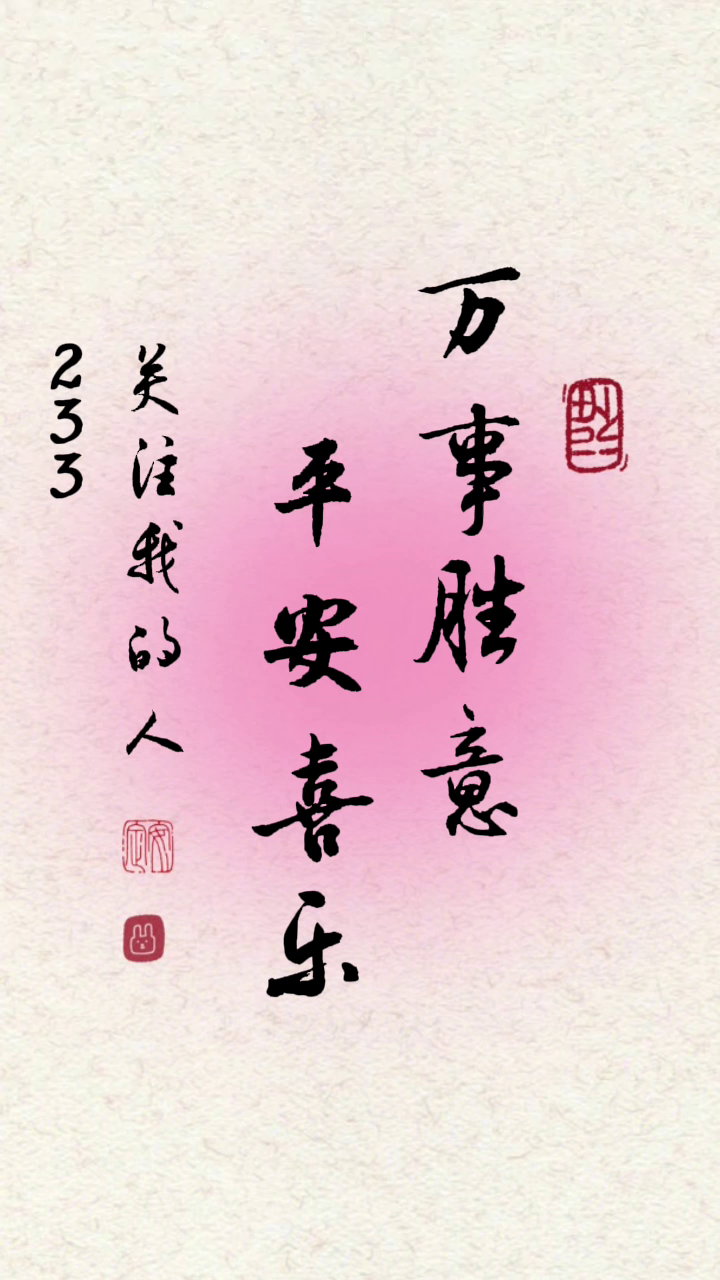 万事胜意
平安喜乐
关注我的人
233